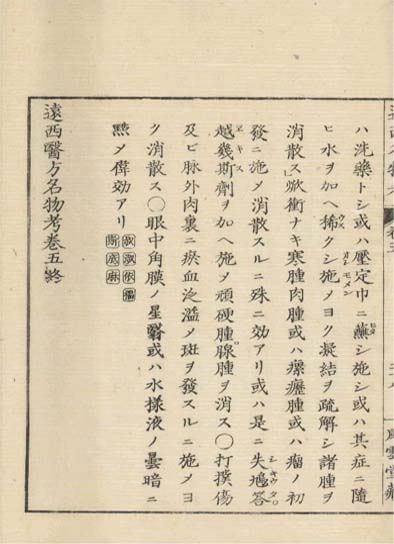 ハ洗藥トシ或ハ壓定巾ニ蘸シ施シ或ハ其症ニ隨
ヒ水ヲ加ヘ稀クシ施メヨク凝結ヲ疏解シ諸腫ヲ
消散ス焮衝ナキ寒腫肉腫或ハ瘰癧腫或ハ瘤ノ初
發ニ施メ消散スルニ殊ニ効アリ或ハ是ニ失鳩答
越幾斯劑ヲ加ヘ施メ頑硬腫腺腫ヲ消ス〇打撲傷
及ビ脉外肉裏ニ瘀血泛濫メ斑ヲ發スルニ施メヨ
ク消散ス〇眼中角膜ノ星翳或ハ水樣液ノ曇暗ニ
㸃メ偉効アリ
遠西醫方名物考卷五終